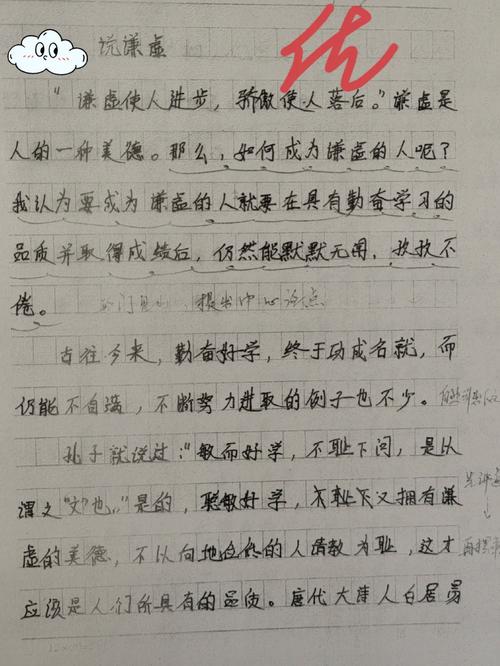 优
说谦虚
“谦虚使人进步，骄傲使人落后。”谦虚是
人的一种美德。那么，如何成为谦虚的人呢？
我认为要成为谦虚的人就要在具有勤奋学习的
品质并取得成绩后，仍然能默默无闻，孜孜不
倦。 提出中心论点
古往今来，勤奋好学，终于功成名就，而
仍能不自满，不断努力进取的例子也不少。
孔子就说过：“敏而好学，不耻下问，是以
谓之“文”也。”是的，聪敏好学，不耻下又拥有谦
虚的美德，不以向地位低的人请教为耻，这才
应该是人们所具有的品质。唐代大诗人白居易